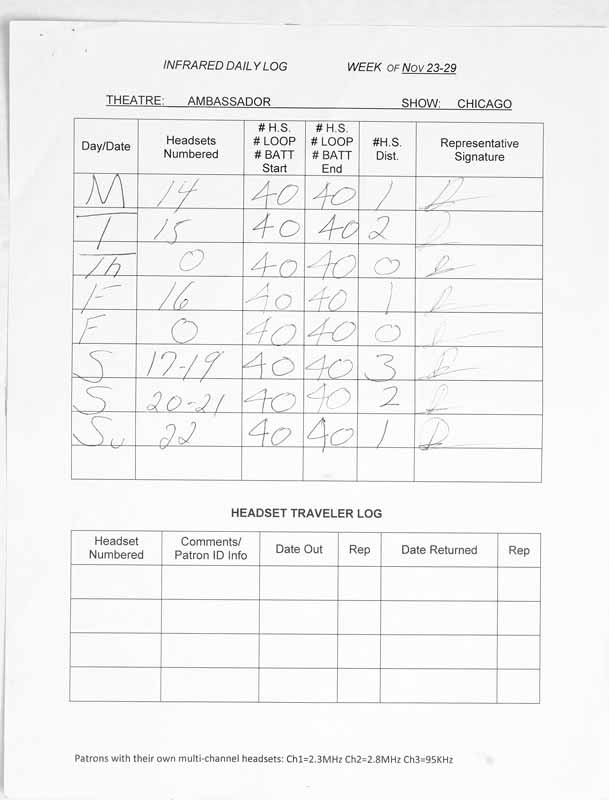 INFRARED DAILY LOG WEEK OF NOV 23-29
THEATRE: AMBASSADOR SHOW: CHICAGO
Day/Date Headsets Numbered # H.S. # LOOP # BATT Start # H.S. # LOOP # BATT End #H.S. Dist. Representative Signature
M 14 40 40 1
T 15 40 40 2
Th 0 40 40 0
F 16 40 40 1
F 0 40 40 0
S 17-19 40 40 3
S 20-21 40 40 2
Su 22 40 40 1
HEADSET TRAVELER LOG
Headset Numbered Comments/ Patron ID Info Date Out Rep Date Returned Rep
Patrons with their own multi-channel headsets: Ch1=2.3MHz Ch2=2.8MHz Ch3=95KHz